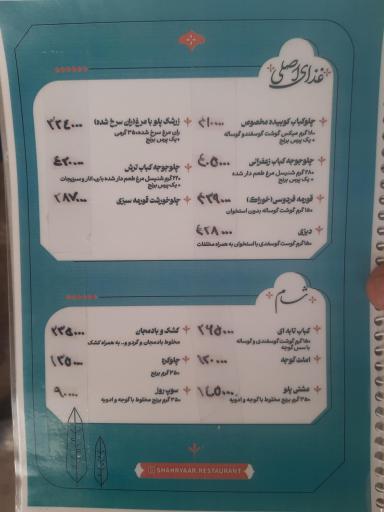 غذای اصلی
چلوکباب کوبیده مخصوص
۱۸۰ گرم میکس گوشت گوسفند و گوساله
+ یک پرس برنج
چلوجوجه کباب زعفرانی ۴۰۵۰۰۰
۲۸۰ گرم شنیسل مرغ طعم دار شده
+ یک پرس برنج
قورمه فردوسی (خوراک) ۴۳۹۰۰۰
۱۵۰ گرم گوشت گوساله بدون استخوان
دیزی ۴۲۸۰۰۰
۱۵۰ گرم گوشت گوسفندی با استخوان به همراه مخلفات
زرشک پلو با مرغ (ران سرخ شده)
ران مرغ سرخ شده ۳۵۰ گرمی
+ یک پرس برنج
چلوجوجه کباب ترش ۴۲۰۰۰۰
۲۲۰ گرم شنیسل مرغ طعم دار شده با رب انار و سبزیجات
+ یک پرس برنج
چلوخورشت قورمه سبزی ۲۸۷۰۰۰
شام
کباب تابه ای ۲۶۵۰۰۰
۱۵۰ گرم گوشت گوسفندی و گوساله
با سس گوجه
املت گوجه ۱۲۰۰۰۰
مشتی پلو ۱۴۵۰۰۰
۳۵۰ گرم برنج مخلوط با گوجه و ادویه
کشک و بادمجان ۲۳۵۰۰۰
مخلوط بادمجان و گردو و.. به همراه کشک
چلوکره ۱۲۵۰۰۰
۳۵۰ گرم برنج
سوپ روز ۹۰۰۰۰
۳۵۰ گرم برنج مخلوط با گوجه و ادویه
SHAHRYAAR.RESTAURANT